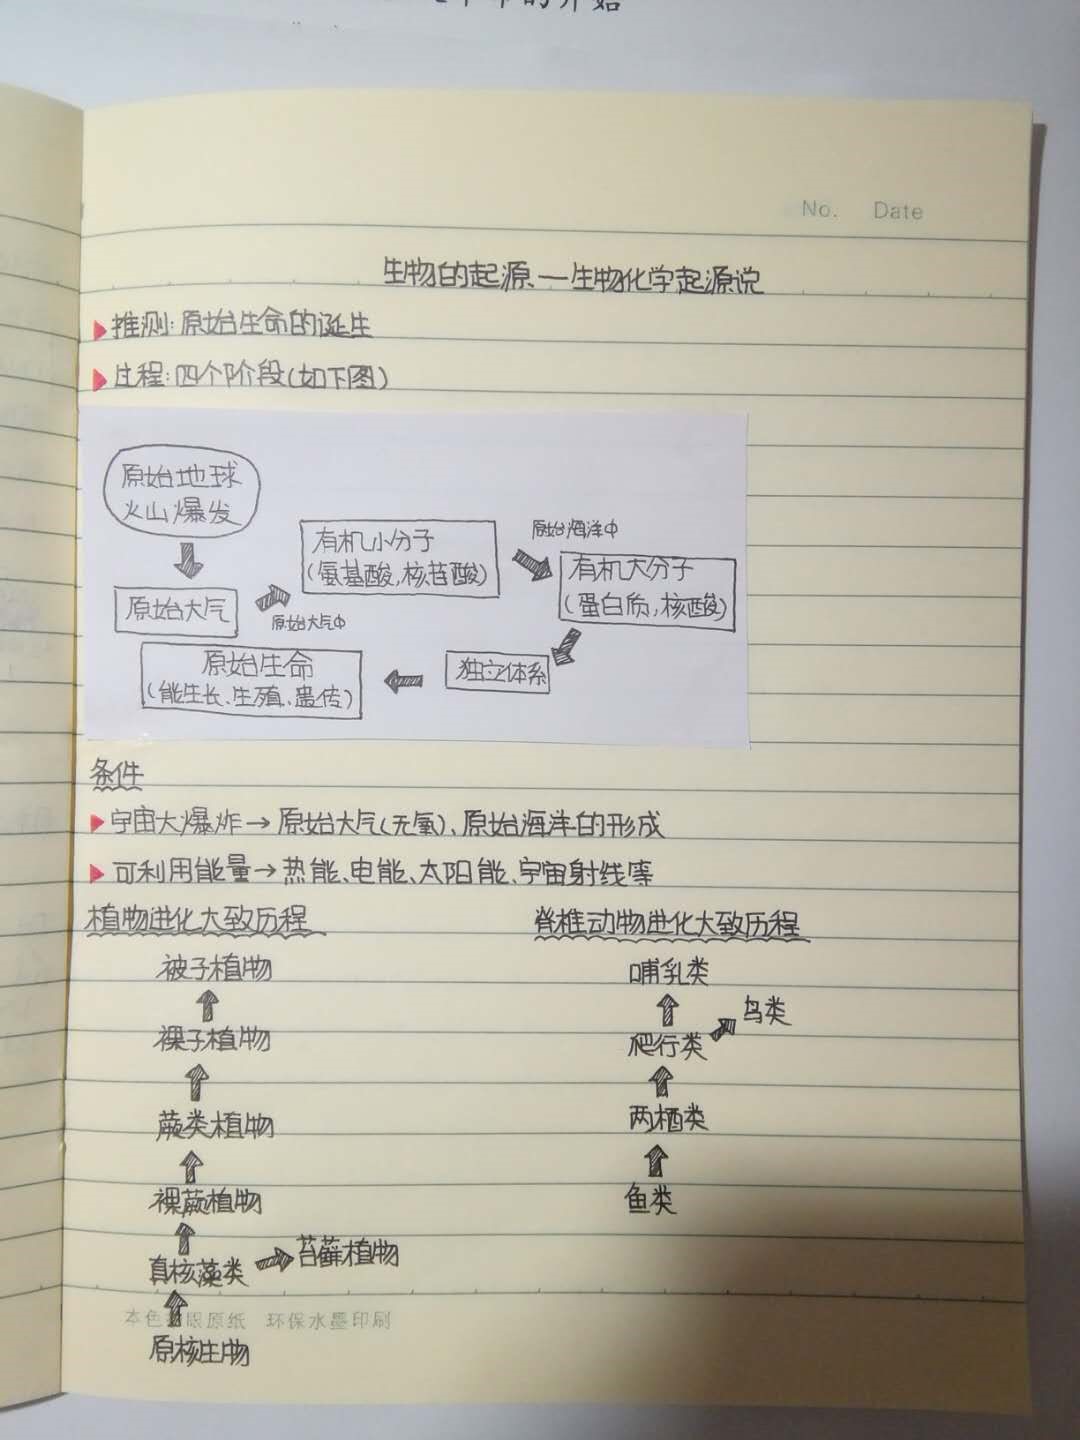 的开始
No. Date
生物的起源—生物化学起源说
推测:原始生命的诞生
过程:四个阶段(如下图)
原始地球
火山爆发
原始大气
原始大气中
有机小分子
(氨基酸,核苷酸)
原始海洋中
有机大分子
(蛋白质,核酸)
独立体系
原始生命
(能生长、生殖、遗传)
条件
宇宙大爆炸→原始大气(无氧)、原始海洋的形成
可利用能量→热能、电能、太阳能、宇宙射线等
植物进化大致历程
被子植物
裸子植物
蕨类植物
裸蕨植物
真核藻类
苔藓植物
原核生物
脊椎动物进化大致历程
哺乳类
鸟类
爬行类
两栖类
鱼类
本色 眼原纸 环保水墨印刷